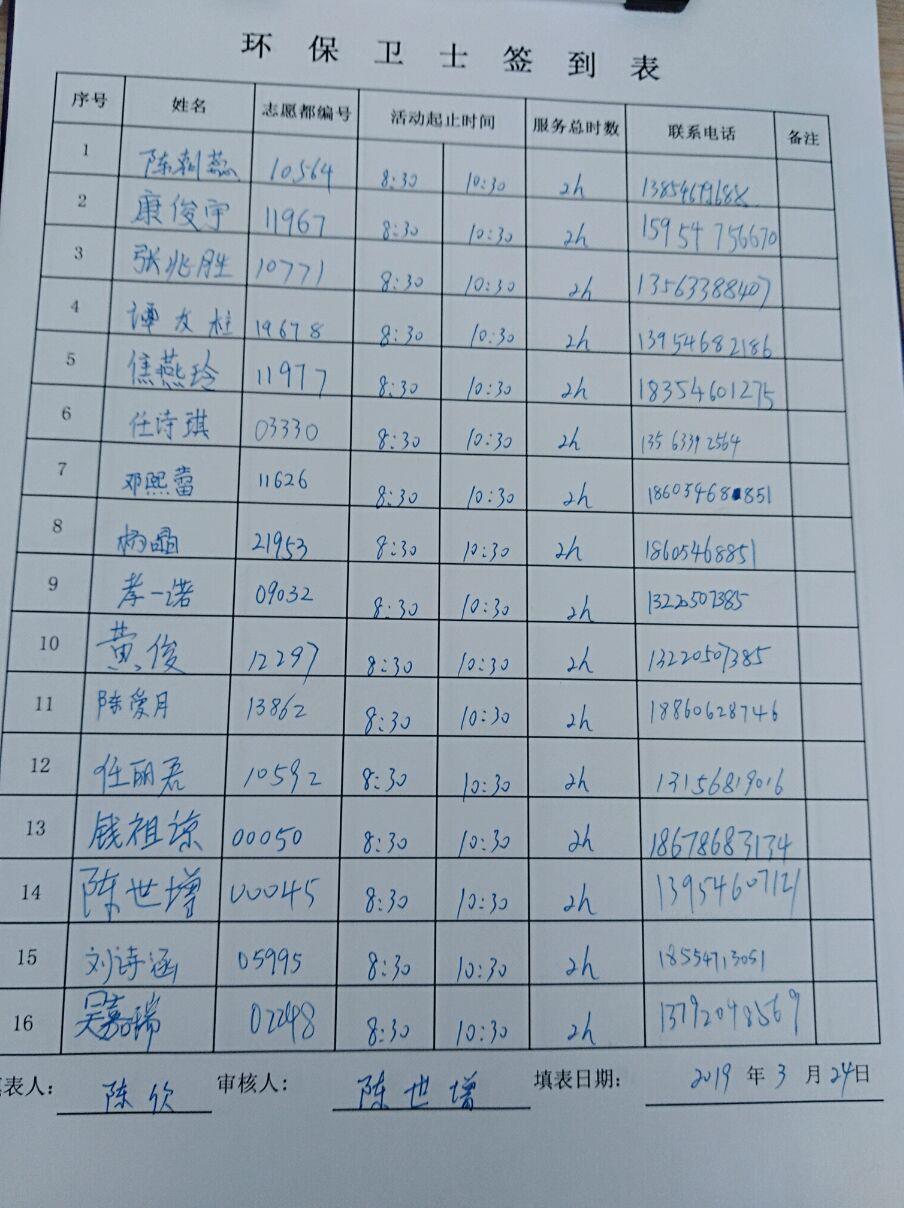 环保卫士签到表
序号 姓名 志愿都编号 活动起止时间 服务总时数 联系电话 备注
1 陈朝蕊 10564 8:30 10:30 2h
2 康俊宇 11967 8:30 10:30 2h 15954756670
3 张兆胜 10771 8:30 10:30 2h 13563388407
4 谭友柱 19678 8:30 10:30 2h 13954682186
5 焦燕玲 11977 8:30 10:30 2h 18354601275
6 任诗琪 03330 8:30 10:30 2h 13563392564
7 邓熙蕾 11626 8:30 10:30 2h
8 杨晶 21953 8:30 10:30 2h 18605468851
9 李一诺 09032 8:30 10:30 2h 13220507385
10 黄俊 12297 8:30 10:30 2h 13220507385
11 陈爱月 13862 8:30 10:30 2h 18860628746
12 任丽君 10592 8:30 10:30 2h 13156819016
13 钱祖谅 00050 8:30 10:30 2h 18678683134
14 陈世增 00045 8:30 10:30 2h 13954607121
15 刘诗涵 05995 8:30 10:30 2h 18554713051
16 吴嘉瑞 02248 8:30 10:30 2h 13792048569
表人: 陈欣 审核人: 陈世增 填表日期: 2019年3月24日